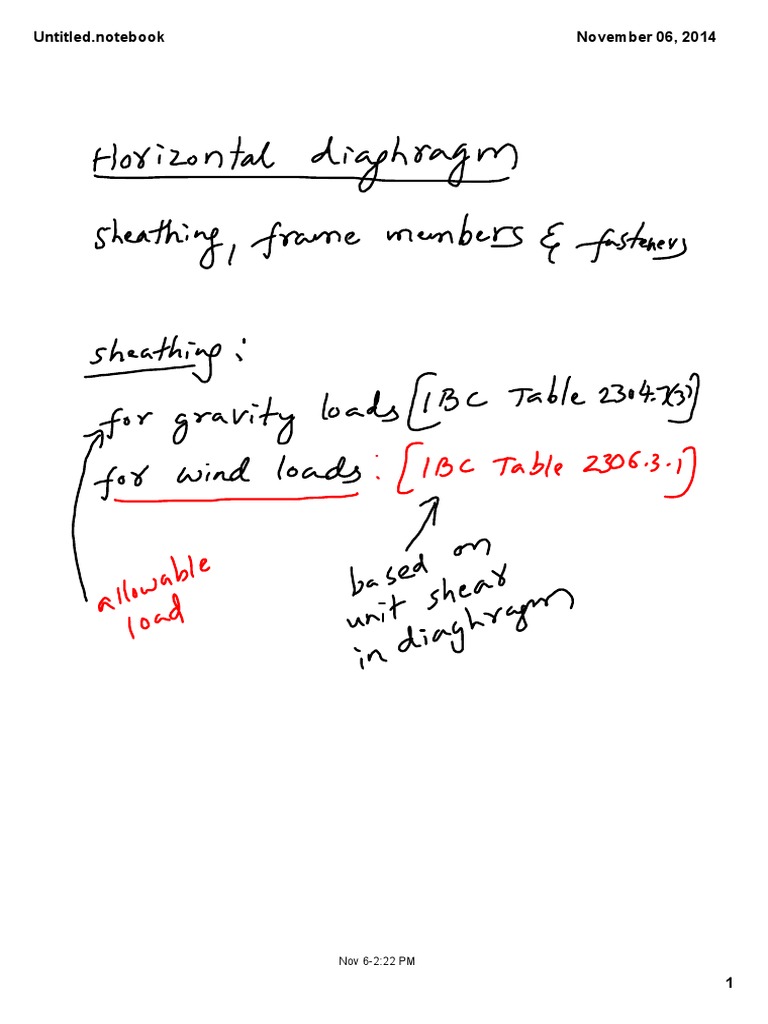 Untitled.notebook November 06, 2014
Horizontal diaphragm
sheathing, frame members & fasteners
sheathing:
for gravity loads [IBC Table 2304.7(3)]
for wind loads: [IBC Table 2306.3.1]
allowable
load
based on
unit shear
in diaghragm
Nov 6-2:22 PM
1